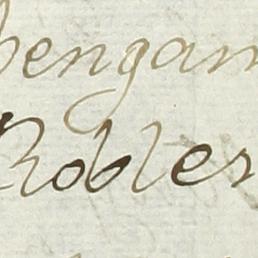 bengan
Robles